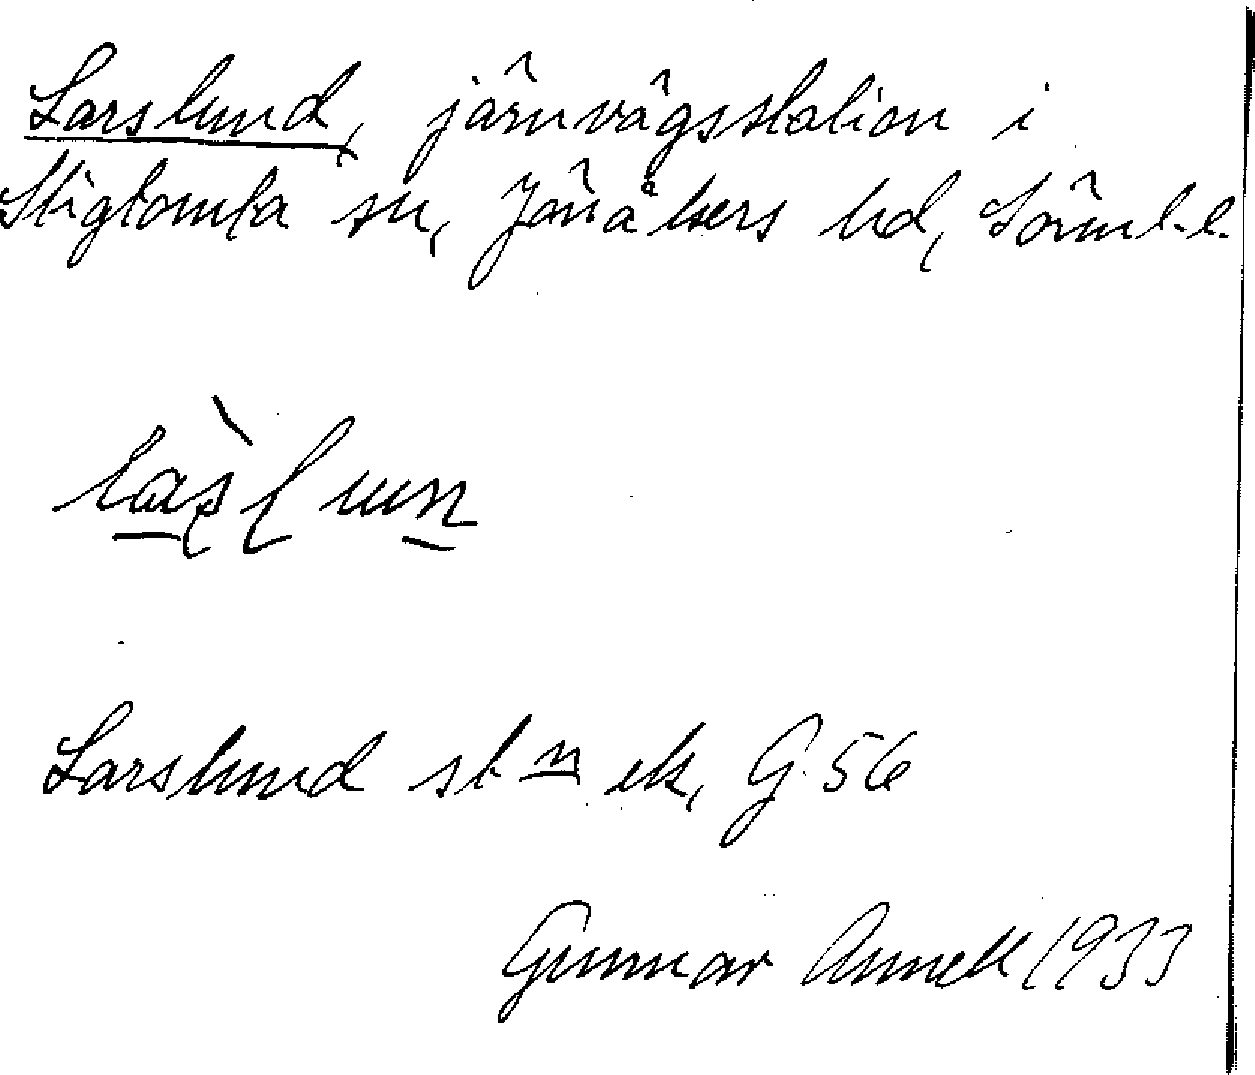 Larslund, järnvägsstation i
Stigtomta sn, Jönåkers hd, Sörml. l.
Larslund st n ek, G. 56
Gunnar Annell 1933